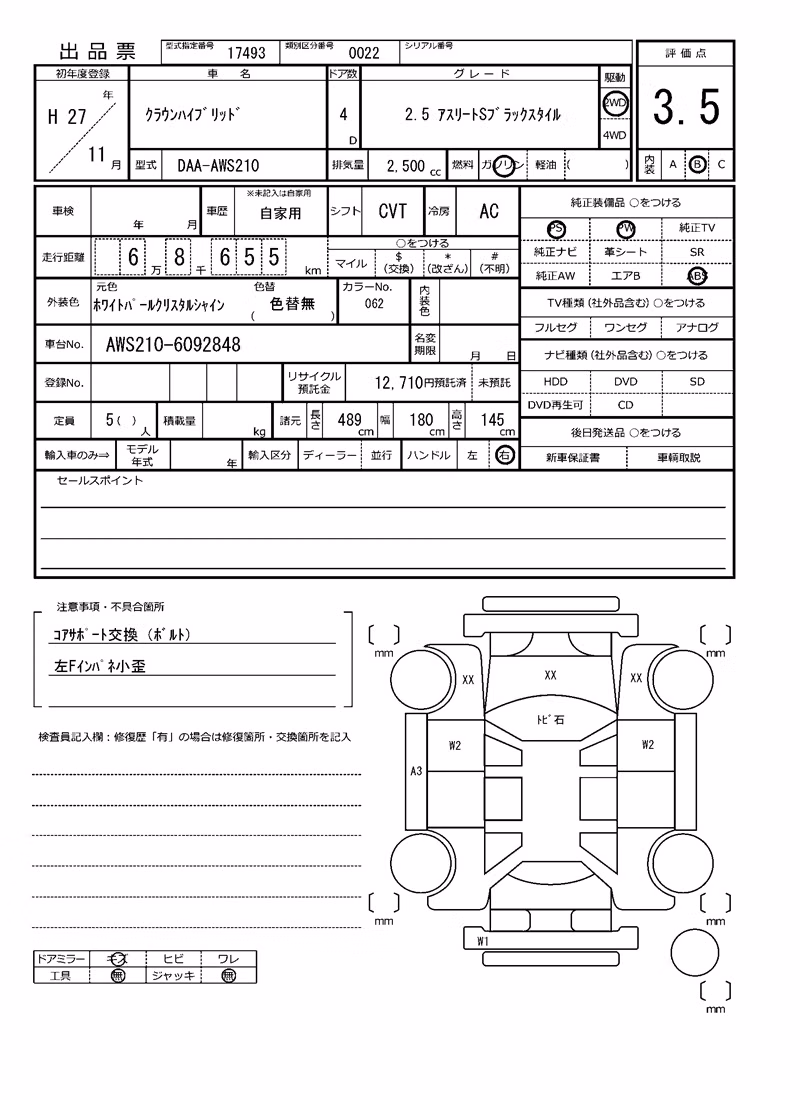 出品票 型式指定番号 17493 類別区分番号 0022 シリアル番号
評価点
初年度登録 車名 ドア数 グレード 駆動
H 27 年 クラウンハイブリッド 4 D 2.5 アスリートSブラックスタイル 2WD 3.5
11 月 4WD
型式 DAA-AWS210 排気量 2,500 cc 燃料 ガソリン 軽油 ( ) 内装 A B C
車検 年 月 車歴 ※未記入は自家用 自家用 シフト CVT 冷房 AC
走行距離 6 万 8 千 6 5 5 km ○をつける
マイル $ (交換) * (改ざん) # (不明)
外装色 元色 ホワイトパールクリスタルシャイン 色替 ( 色替無 ) カラーNo. 062 内装色
車台No. AWS210-6092848 名変期限 月 日
登録No. リサイクル預託金 12,710円預託済 未預託
定員 5( )人 積載量 kg 諸元 長さ 489cm 幅 180cm 高さ 145cm
輸入車のみ⇒ モデル年式 年 輸入区分 ディーラー 並行 ハンドル 左 右
純正装備品 ○をつける
PS PW 純正TV
純正ナビ 革シート SR
純正AW エアB ABS
TV種類(社外品含む)○をつける
フルセグ ワンセグ アナログ
ナビ種類(社外品含む)○をつける
HDD DVD SD
DVD再生可 CD
後日発送品 ○をつける
新車保証書 車輌取説
セールスポイント
注意事項・不具合箇所
コアサポート交換(ボルト)
左Fインパネ小歪
検査員記入欄:修復歴「有」の場合は修復箇所・交換箇所を記入
ドアミラー キズ ヒビ ワレ
工具 無 ジャッキ 無
mm mm
XX XX XX
トビ石
W2 W2
A3
mm mm
W1
mm